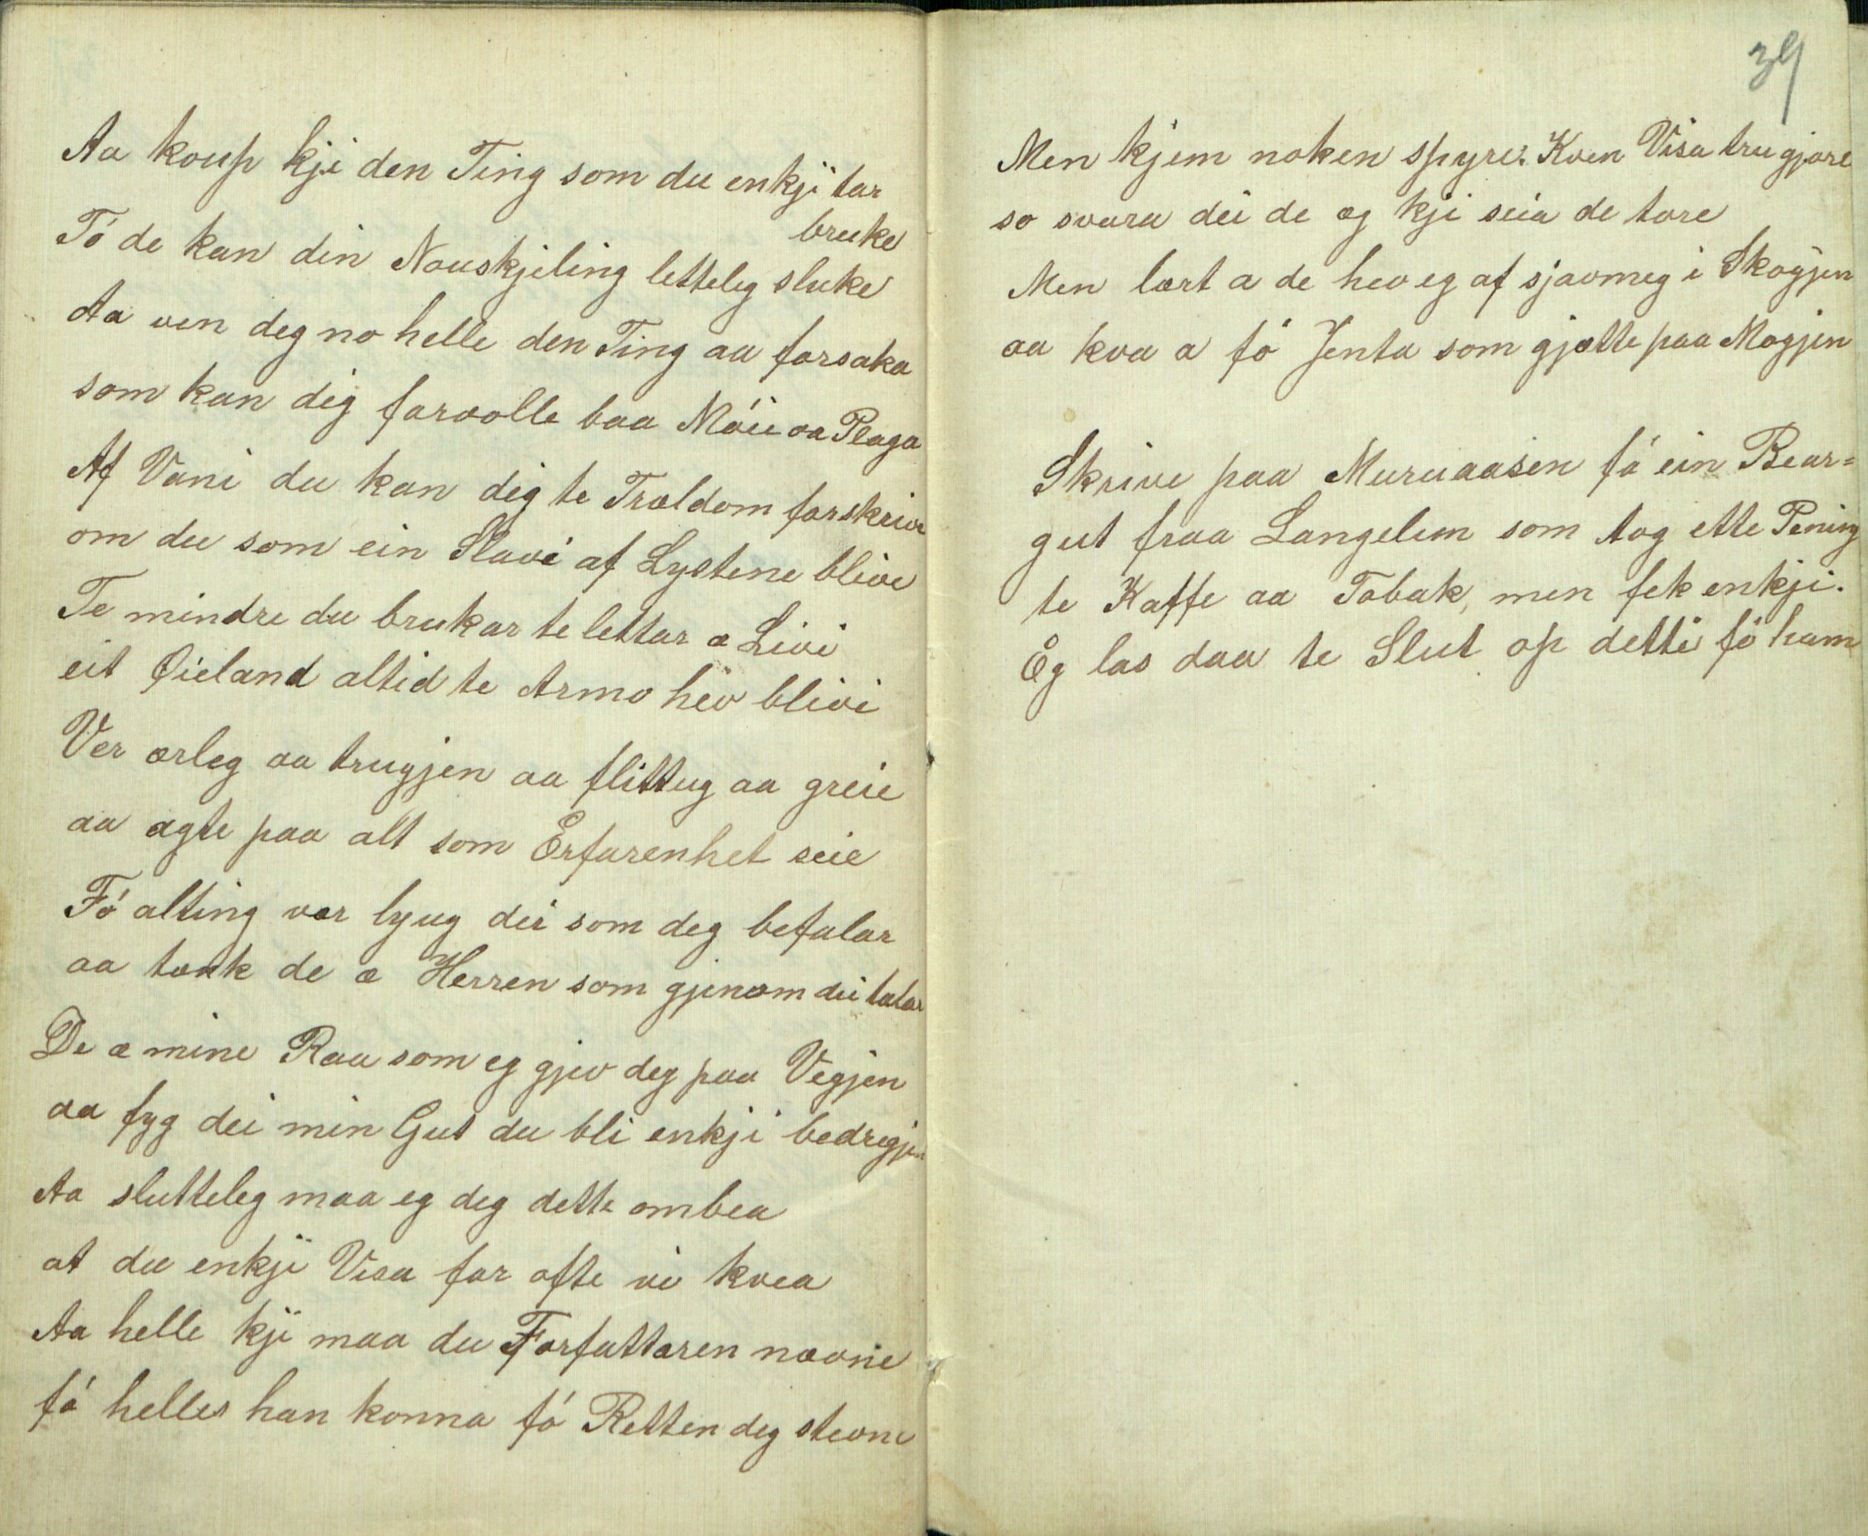 Aa koup kji den Ting som du enkji tar
bruke
Tó de kan din Nouskjiling letteleg sluke
Aa ven deg no helle den Ting aa forsaka
som kan dig forvolle baa Móie aa Plaga
Af Vani du kan dig te Trældom forskrive
om du som ein Slavi af Lystene blive
Te mindre du brukar te lettar æ Livi
eit Øieland altid te Armo hev blivi
Ver ærleg aa trugjen aa flittug aa greie
aa agte paa alt som Erfarenhet seie
Fó alting vær lyug dei som deg befalar
aa tænk de æ Herren som gjenom dei talar
De æ mine Raa som eg gjev deg paa Vegjen
aa fyg dei min Gut du bli enkji bedregjen
Aa slutteleg maa eg deg dette ombea
at du enkji Visa for ofte vi kvea
Aa helle kji maa du Forfattaren nævne
fó helles han konna fó Retten deg stevne
39
Men kjem noken spyre: Kven Visa tru gjore
so svara dei de eg kji seia de tore
Men lært a de hev eg af sjavmeg i Skogjen
aa kvæ a fó Jenta som gjætte paa Mogjen
Skrive paa Muruaasen fó ein Bear-
gut fraa Langelim som tog ette Pening
te Kaffe aa Tobak, men fek enkji.
Eg las daa te Slut op detti fó ham